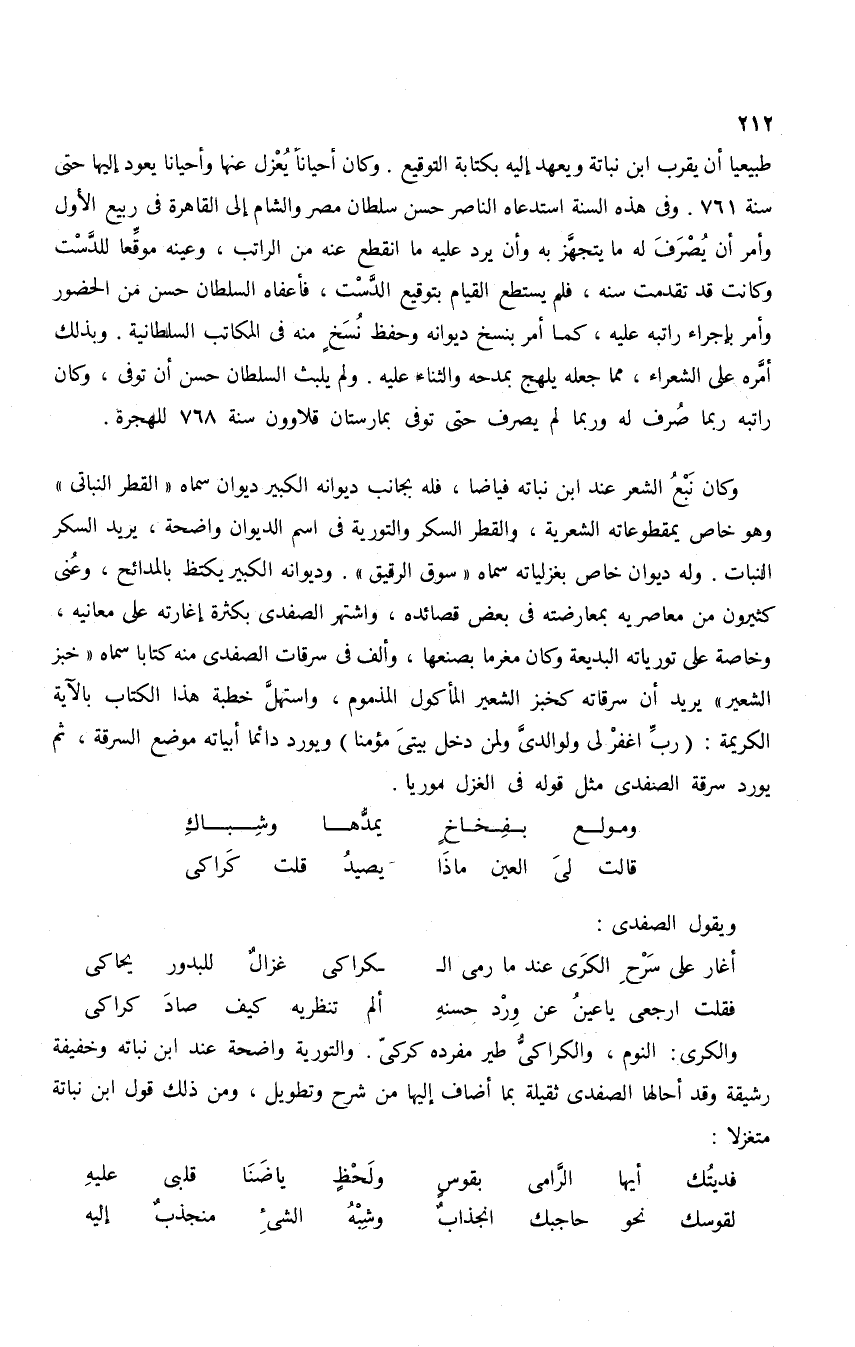 ٢١٢
طبيعيا أن يقرب ابن نباتة ويعهد إليه بكتابة التوقيع . وكان أحياناً يُعْزل عنها وأحيانا يعود إليها حتى
سنة ٧٦١ . وفى هذه السنة استدعاه الناصر حسن سلطان مصر والشام إلى القاهرة فى ربيع الأول
وأمر أن يُصْرَفَ له ما يتجهَّز به وأن يرد عليه ما انقطع عنه من الراتب ، وعينه موقِّعا للدَّسْت
وكانت قد تقدمت سنه ، فلم يستطع القيام بتوقيع الدَّسْت ، فأعفاه السلطان حسن من الحضور
وأمر بإجراء راتبه عليه ، كما أمر بنسخ ديوانه وحفظ نُسَخٍ منه فى المكاتب السلطانية . وبذلك
أمَّره على الشعراء ، مما جعله يلهج بمدحه والثناء عليه . ولم يلبث السلطان حسن أن توفى ، وكان
راتبه ربما صُرف له وربما لم يصرف حتى توفى بمارستان قلاوون سنة ٧٦٨ للهجرة .
وكان نَبْعُ الشعر عند ابن نباته فياضا ، فله بجانب ديوانه الكبير ديوان سماه « القطر النباتى »
وهو خاص بمقطوعاته الشعرية ، والقطر السكر والتورية فى اسم الديوان واضحة ، يريد السكر
النبات . وله ديوان خاص بغزلياته سماه « سوق الرقيق » . وديوانه الكبير يكتظ بالمدائح ، وعُنى
كثيرون من معاصريه بمعارضته فى بعض قصائده ، واشتهر الصفدى بكثرة إغارته على معانيه ،
وخاصة على تورياته البديعة وكان مغرما بصنعها ، وألف فى سرقات الصفدى منه كتابا سماه « خبز
الشعير» يريد أن سرقاته كخبز الشعير المأكول المذموم ، واستهلَّ خطبة هذا الكتاب بالآية
الكريمة : ( ربِّ اغفرْ لى ولوالدىَّ ولمن دخل بيتىَ مؤمنا ) ويورد دائما أبياته موضع السرقة ، ثم
يورد سرقة الصفدى مثل قوله فى الغزل موريا .
ومولع بفِخاخٍ يمدُّها وشِباكِ
قالت لىَ العين ماذَا يصيدُ قلت كَراكى
ويقول الصفدى :
أغار على سَرْحِ الكرَى عند ما رمى الـ ـكراكى غزالٌ للبدور يحاكى
فقلت ارجعى ياعينُ عن وِرْد حسنهِ ألم تنظريه كيف صادَ كراكى
والكرى: النوم ، والكراكىُّ طير مفرده كركىّ . والتورية واضحة عند ابن نباته وخفيفة
رشيقة وقد أحالها الصفدى ثقيلة بما أضاف إليها من شرح وتطويل ، ومن ذلك قول ابن نباتة
متغزلا :
فديتُك أيها الرَّامى بقوسٍ ولَحْظٍ ياضَنَا قلبى عليهِ
لقوسك نحو حاجبك انجذابٌ وشِبْهُ الشىءِ منجذبٌ إليه